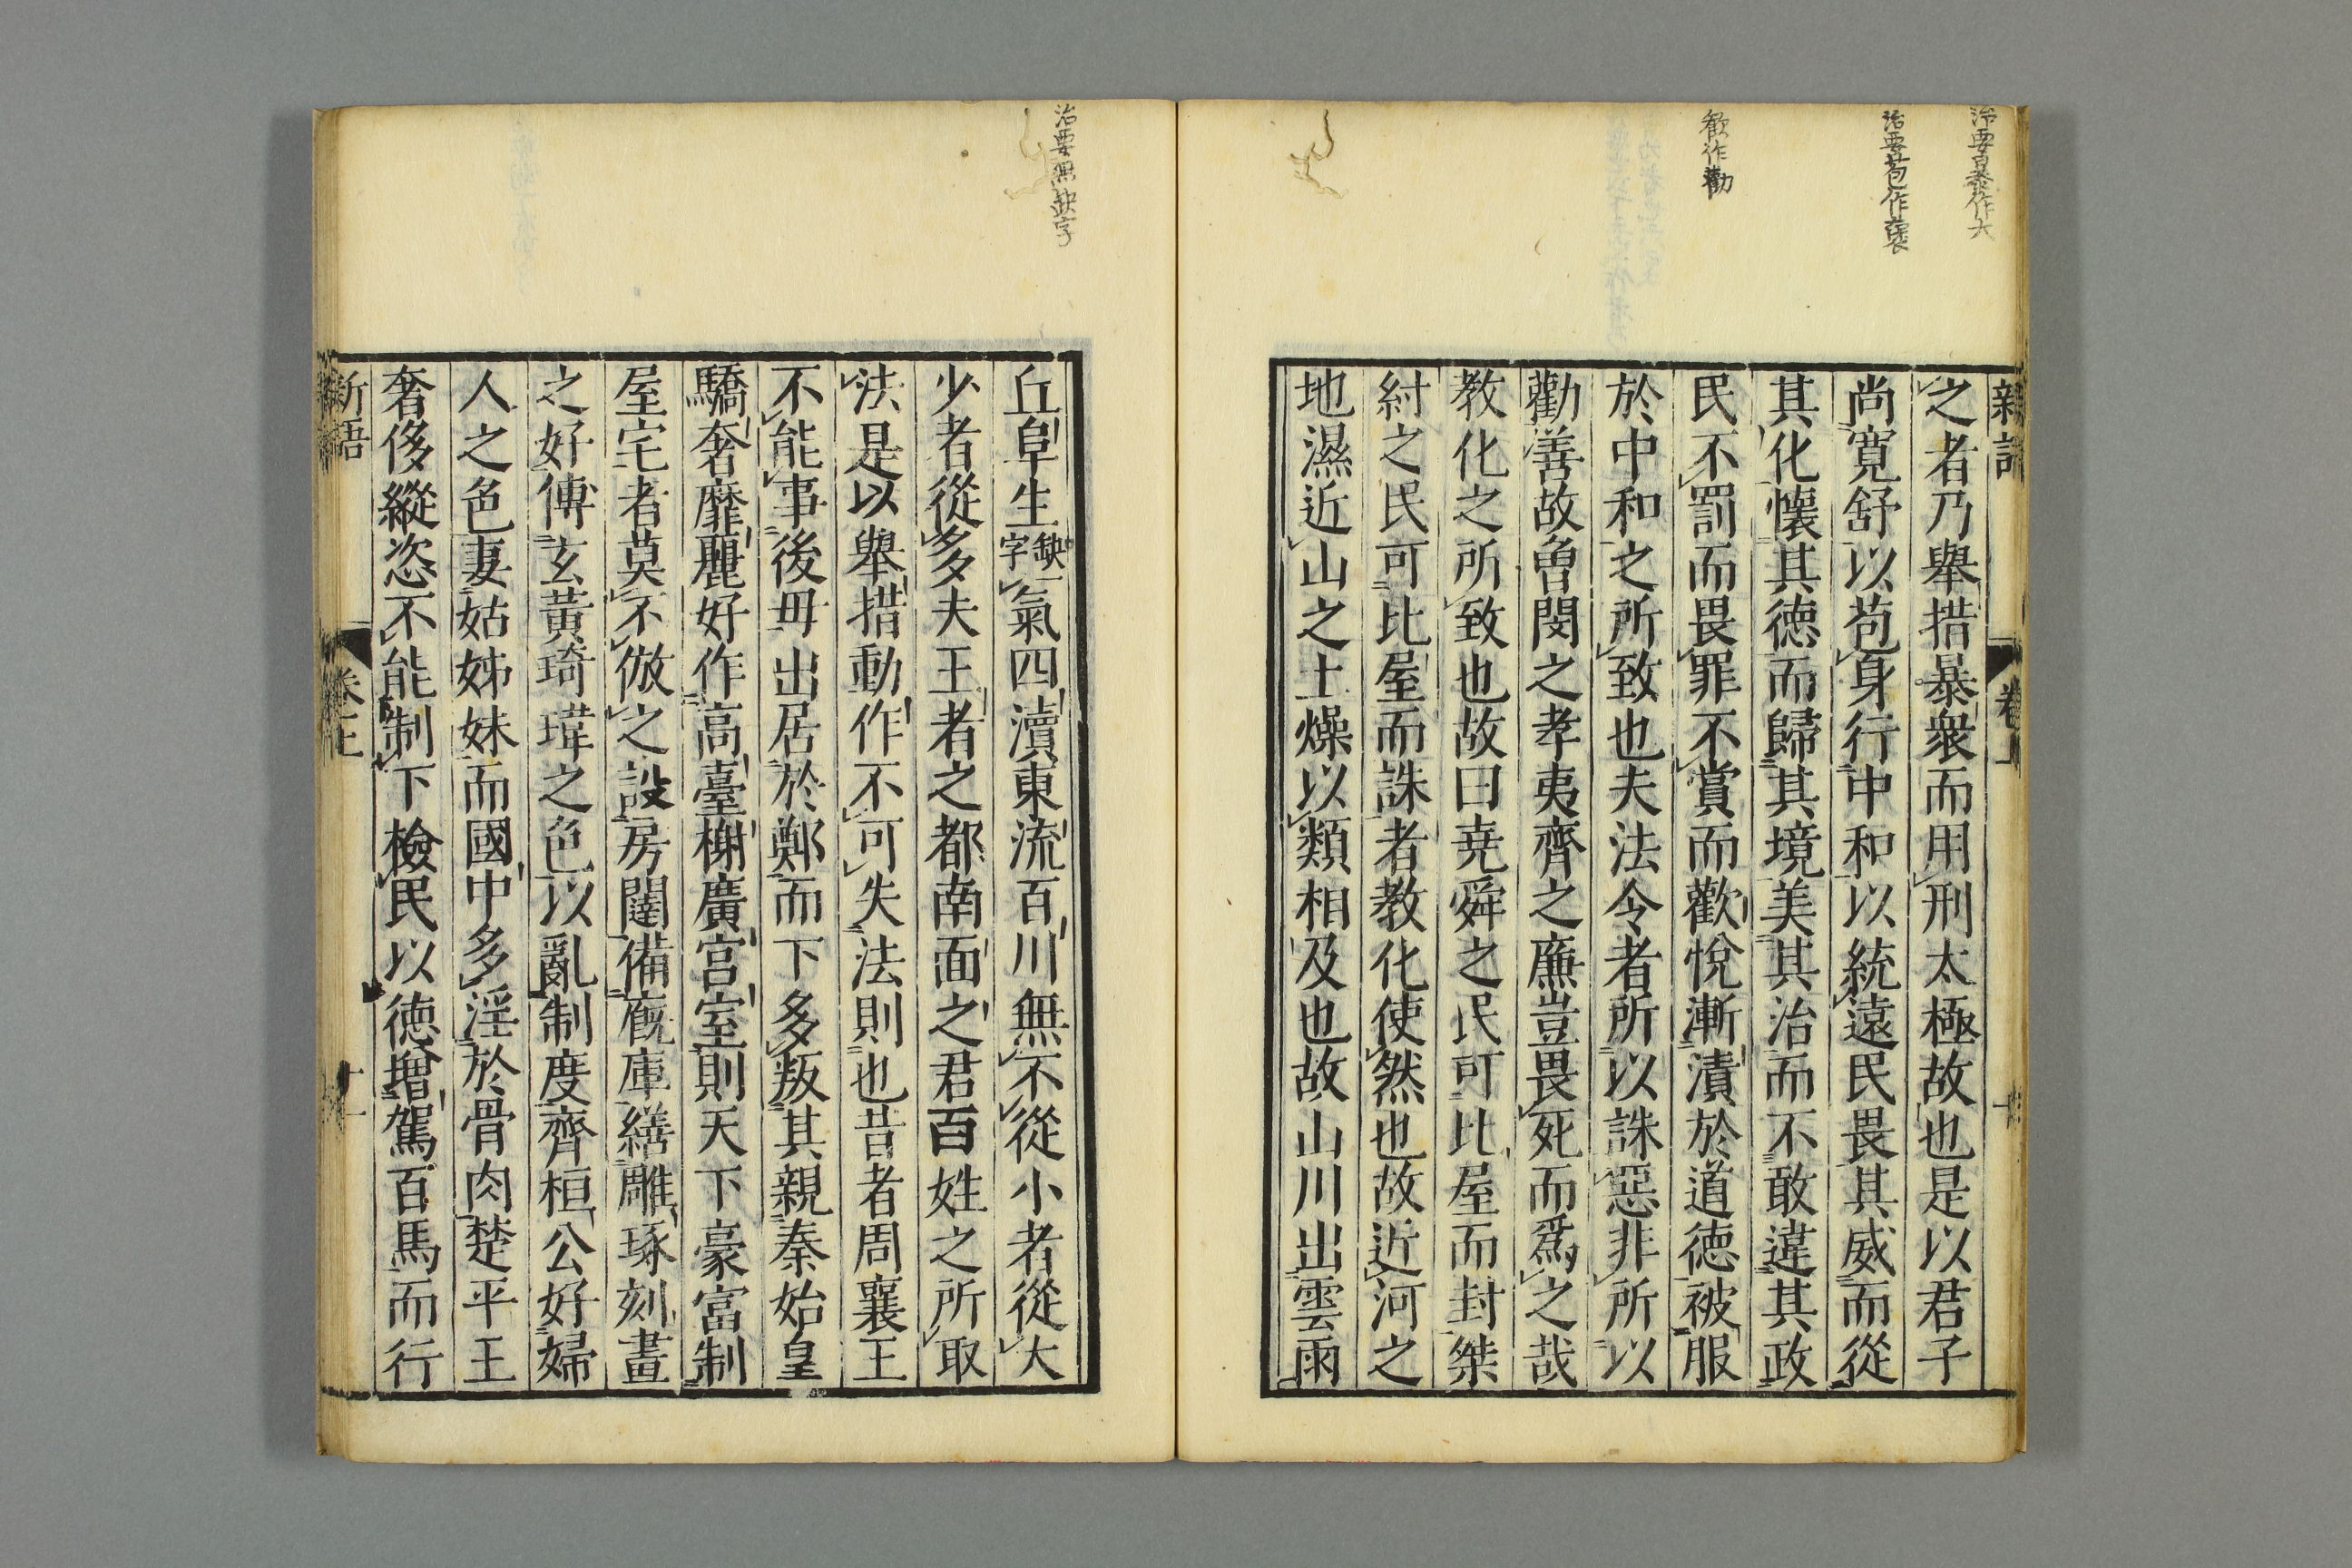 治要暴作大
治要苞作襃
歡作勸
之者乃舉措暴衆而用刑太極故也是以君子
尚寬舒以苞身行中和以統遠民畏其威而從
其化懷其德而歸其境美其治而不敢違其政
民不罰而畏罪不賞而歡悅漸漬於道德被服
於中和之所致也夫法令者所以誅惡非所以
勸善故曾閔之孝夷齊之廉豈畏死而爲之哉
教化之所致也故曰堯舜之民可比屋而封桀
紂之民可比屋而誅者教化使然也故近河之
地濕近山之土燥以類相及也故山川出雲雨
治要無缺字
丘阜生缺一字氣四瀆東流百川無不從小者從大
少者從多夫王者之都南面之君百姓之所取
法是以舉措動作不可失法則也昔者周襄王
不能事後母出居於鄭而下多叛其親秦始皇
驕奢靡麗好作高臺榭廣宮室則天下豪富制
屋宅者莫不倣之設房闥備廐庫繕雕琢刻畫
之好傅玄黃琦瑋之色以亂制度齊桓公好婦
人之色妻姑姊妹而國中多淫於骨肉楚平王
奢侈縱恣不能制下檢民以德增駕百馬而行
新語
卷上
十一